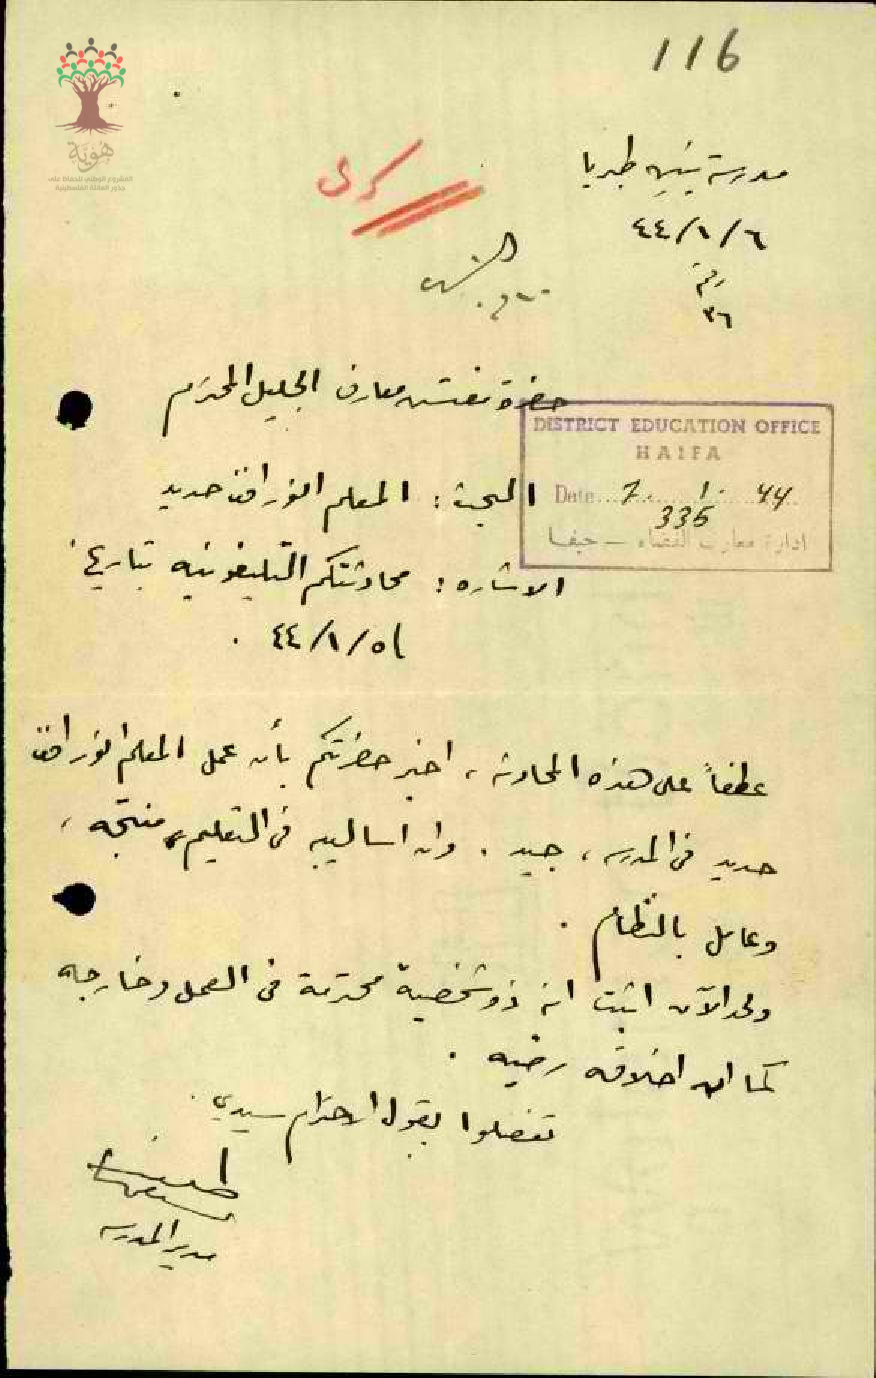 116
هوية
المشروع الوطني للحفاظ على
جذور العائلة الفلسطينية
مدرسة بنين طبريا
٤٤/١/٦
رقم
٣٦
حضرة مفتش معارف الجليل المحترم
DISTRICT EDUCATION OFFICE
HAIFA
Date 7. 1. 44
335
ادارة معارف القضاء – حيفا
المبحث: المعلم نور افت حديد
الاشاره: محادثتكم التليفونيه بتاريخ
٤٤/١/٥ .
عطفاً على هذه المحادثه، اخبر حضرتكم بأن عمل المعلم نور افت
حديد في المدرسه، جيد. وان اساليبه في التعليم منتجه،
وعامل بالنظام.
ولحد الآن اثبت انه ذو شخصية محترمة في العمل وخارجه
كما ان اخلاقه رضيه.
تفضلوا بقبول الاحترام سيدي.
مدير المدرسه